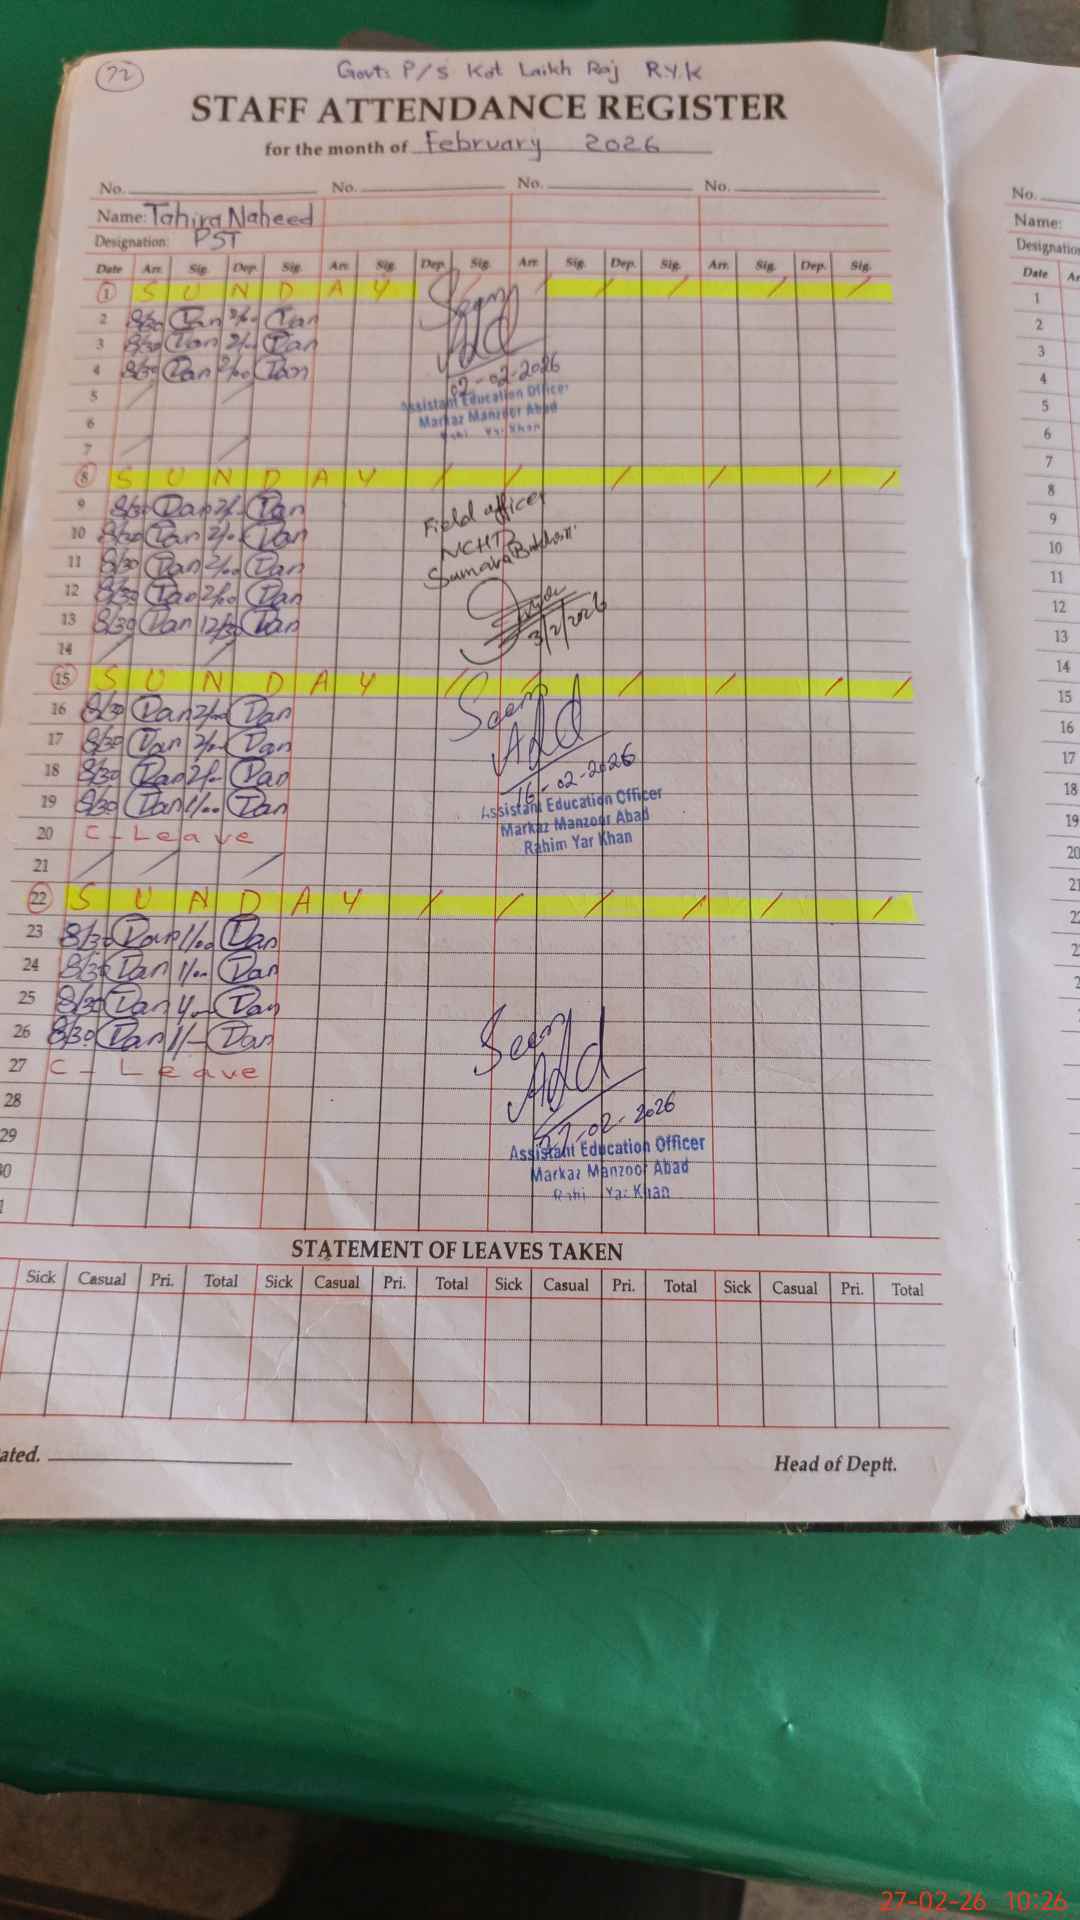 72
Govt: P/S Kot Laikh Raj R.Y.K
STAFF ATTENDANCE REGISTER
for the month of February 2026
No. No. No. No.
Name: Tahira Naheed
Designation: PST
Date Arr. Sig. Dep. Sig. Arr. Sig. Dep. Sig. Arr. Sig. Dep. Sig. Arr. Sig. Dep. Sig.
1 S U N D A Y / / / / / /
2 8/30 Dan 2/00 Dan
3 8/30 Dan 2/00 Dan
4 8/30 Dan 2/00 Dan
5
6
7
8 S U N D A Y / / / / / /
9 8/30 Dan 2/- Dan
10 8/30 Dan 2/- Dan
11 8/30 Dan 2/00 Dan
12 8/30 Dan 2/00 Dan
13 8/30 Dan 12/30 Dan
14
15 S U N D A Y / / / / / /
16 8/30 Dan 2/00 Dan
17 8/30 Dan 2/- Dan
18 8/30 Dan 2/- Dan
19 8/30 Dan 1/00 Dan
20 C - Leave
21
22 S U N D A Y / / / / / /
23 8/30 Dan 1/00 Dan
24 8/30 Dan 1/00 Dan
25 8/30 Dan 1/00 Dan
26 8/30 Dan 1/- Dan
27 C - Leave
28
29
0
1
Seen
02-02-2026
Assistant Education Officer
Markaz Manzoor Abad
Rahi Yar Khan
Field officer
NCHD
Sumaira
3/2/2026
Seen
16-02-2026
Assistant Education Officer
Markaz Manzoor Abad
Rahim Yar Khan
Seen
27-02-2026
Assistant Education Officer
Markaz Manzoor Abad
Rahi Yar Khan
STATEMENT OF LEAVES TAKEN
Sick Casual Pri. Total Sick Casual Pri. Total Sick Casual Pri. Total Sick Casual Pri. Total
ated.
Head of Deptt.
No.
Name:
Designation
Date Ar
1
2
3
4
5
6
7
8
9
10
11
12
13
14
15
16
17
18
19
20
21
22
27-02-26 10:26